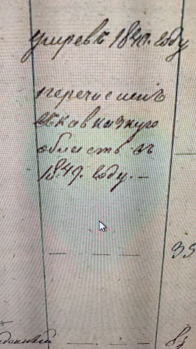 умре въ 184. году
перечисленъ
въ кавказкую
область въ
1847. году. —
35